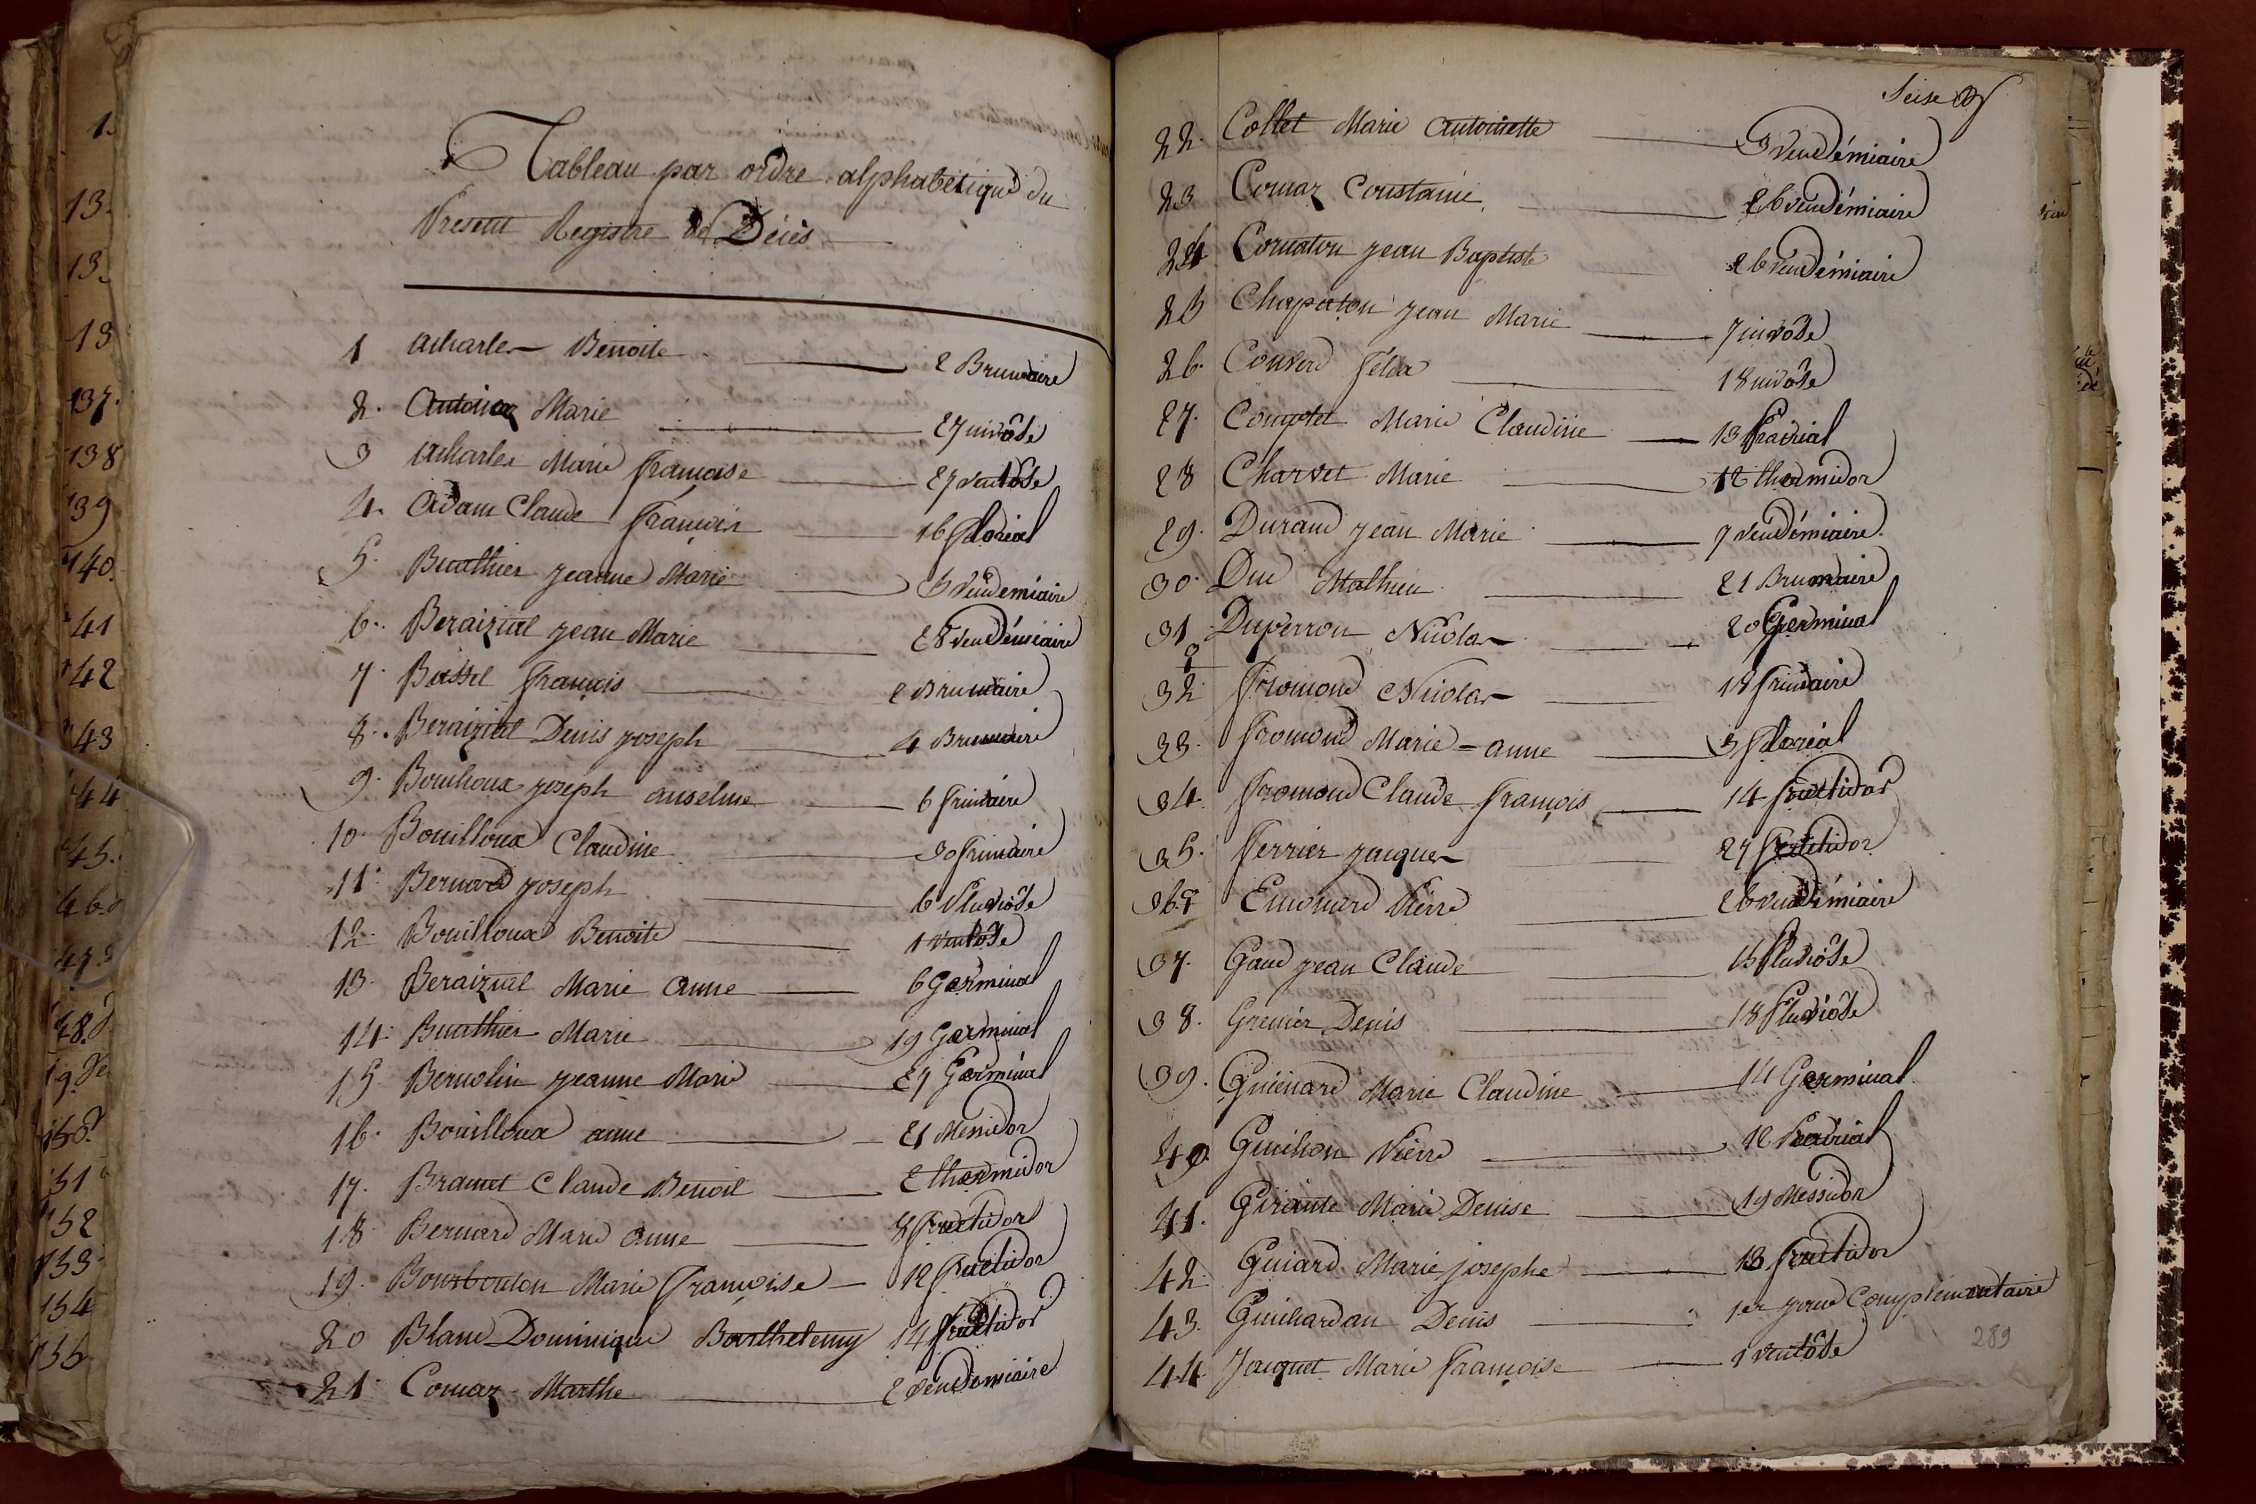 Tableau par ordre alphabétique du
Present Registre de Décès
1 acharles Benoite 2 Brumaire
2. Antoinaz Marie 27 nivôse
3 acharles Marie françoise 27 ventôse
4. Adam Claude françois 16 floréal
5. Buathier jeanne Marie 5 vendemiaire
6. Beraizial jean Marie 28 vendémiaire
7. Bussel françois 2 Brumaire
8. Beraizial Denis joseph 4 Brumaire
9. Bouihoux joseph anselme 6 frimaire
10. Bouilloux Claudine 30 frimaire
11. Bernard joseph 6 Pluviôse
12. Bouilloux Benoite 1 ventôse
13. Beraizial Marie anne 6 Germinal
14. Buathier Marie 19 Germinal
15. Bernolin jeanne Marie 27 Germinal
16. Bouilloux anne 21 Messidor
17. Bramet Claude Benoit 2 thermidor
18. Bernard Marie Anne 8 fructidor
19. Bourbouton Marie françoise 12 fructidor
20 Blanc Dominique Barthelemy 14 fructidor
21. Comaz Marthe 2 vendemiaire
Seise
22. Collet Marie antoinette 3 vendémiaire
23 Comaz Constanie 26 vendémiaire
24 Cornaton jean Baptiste 26 vendémiaire
25 Chapaton jean Marie 7 nivôse
26. Convert félix 18 nivôse
27. Comptet Marie Claudine 13 Prairial
28 Charvet Marie 12 thermidor
29. Durand jean Marie 7 vendémiaire
30. Duc Mathieu 21 Brumaire
31 Duperron Nicolas 20 Germinal
32 fromond Nicolas 18 frimaire
33. fromond Marie-anne 5 floréal
34. fromond Claude françois 14 fructidor
35. ferrier jacques 27 fructidor
36. Emonard Pierre 26 vendémiaire
37. Gaud jean Claude 15 Pluviôse
38. Grenier Denis 18 Pluviôse
39. Guienard Marie Claudine 14 Germinal
40. Guichon Pierre 12 Prairial
41. Giriante Marie Denise 19 Messidor
42. Guiard Marie josephe 13 fructidor
43. Guichardan Denis 1er jour Complémentaire
44. Jacquet Marie françoise 1 ventôse
289